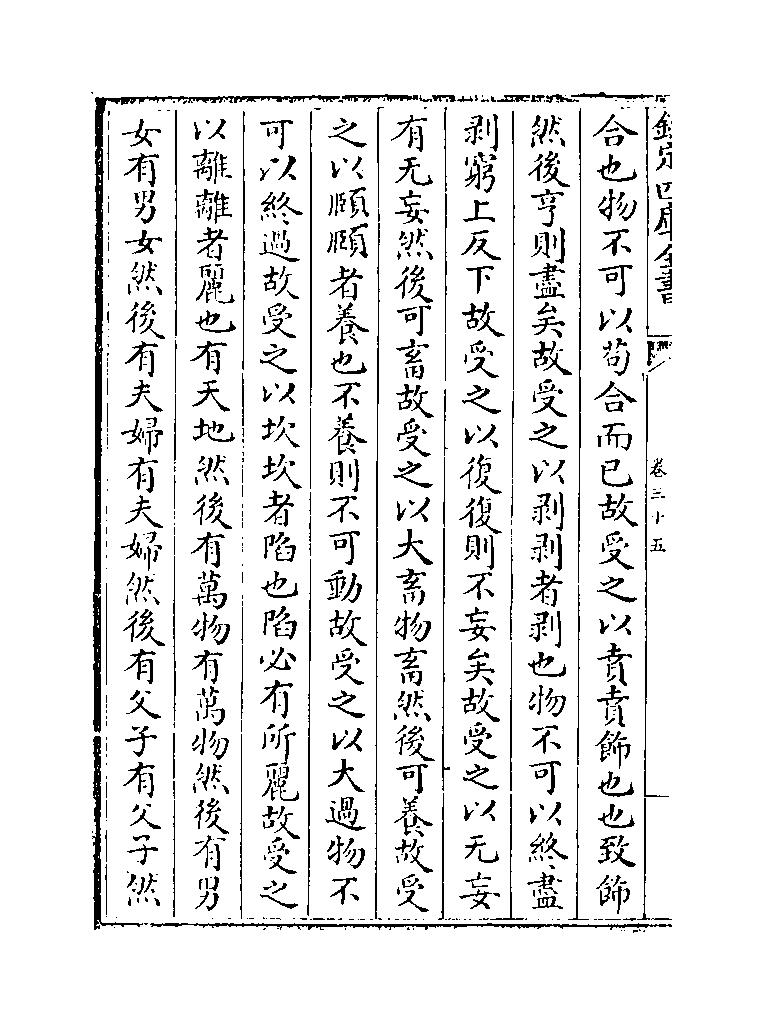 欽定四庫全書
卷三十五
合也物不可以苟合而已故受之以賁賁飾也也致飾
然後亨則盡矣故受之以剥剥者剥也物不可以終盡
剥窮上反下故受之以復復則不妄矣故受之以无妄
有无妄然後可畜故受之以大畜物畜然後可養故受
之以頤頤者養也不養則不可動故受之以大過物不
可以終過故受之以坎坎者陷也陷必有所麗故受之
以離離者麗也有天地然後有萬物有萬物然後有男
女有男女然後有夫婦有夫婦然後有父子有父子然